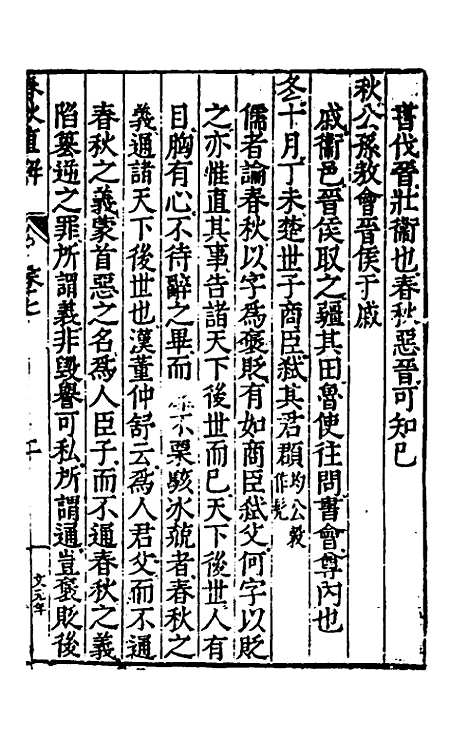 書伐晉壯衞也春秋惡晉可知已
秋公孫敖會晉侯于戚
戚衞邑晉侯取之疆其田魯使往問書會尊內也
冬十月丁未楚世子商臣弒其君頵均公穀作髡
儒者論春秋以字爲褒貶有如商臣弒父何字以貶
之亦惟直其事告諸天下後世而已天下後世人有
目胸有心不待辭之畢而不栗駭冰兢者春秋之
義通諸天下後世也漢董仲舒云爲人君父而不通
春秋之義蒙首惡之名爲人臣子而不通春秋之義
陷篡逆之罪所謂義非毀譽可私所謂通豈褒貶後
春秋直解
卷七
文元年